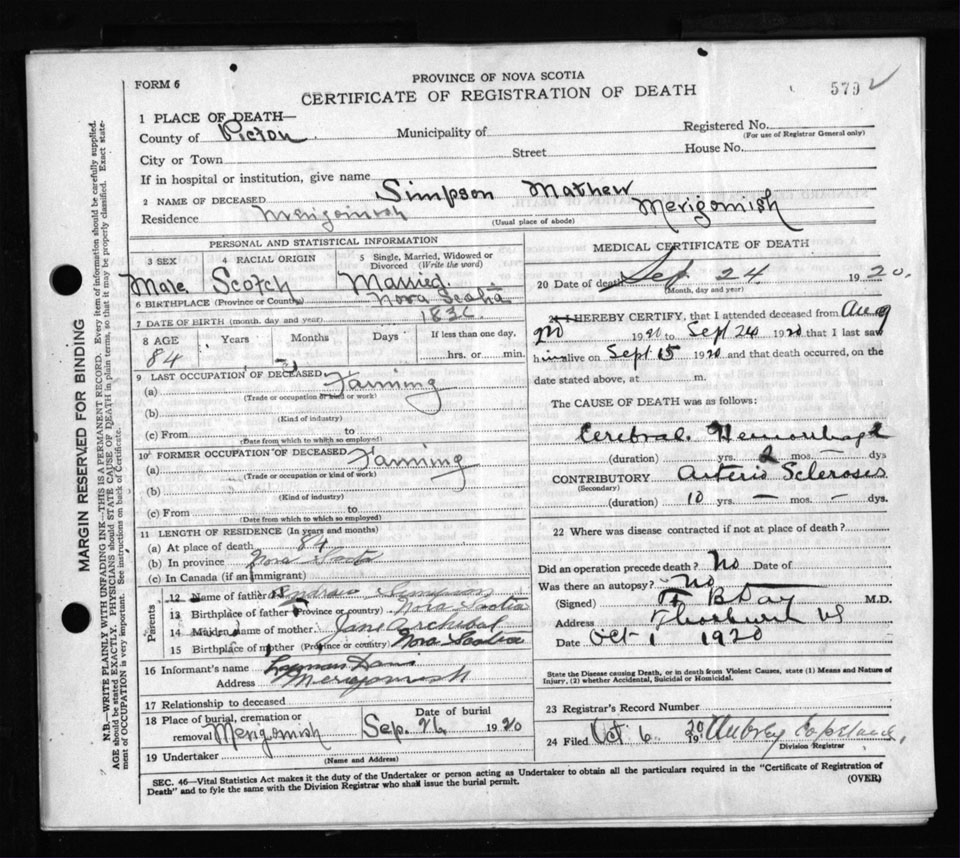 FORM 6
PROVINCE OF NOVA SCOTIA
CERTIFICATE OF REGISTRATION OF DEATH
5792
1 PLACE OF DEATH—
County of Picton
Municipality of
Registered No.
(For use of Registrar General only)
City or Town
Street
House No.
If in hospital or institution, give name
2 NAME OF DECEASED Simpson Mathew
Residence Merigomish
(Usual place of abode)
Merigomish
PERSONAL AND STATISTICAL INFORMATION
3 SEX
4 RACIAL ORIGIN
5 Single, Married, Widowed or Divorced (Write the word)
Male Scotch Married
6 BIRTHPLACE (Province or County) Nova Scotia
7 DATE OF BIRTH (month, day and year) 1836
8 AGE Years Months Days If less than one day,
84
hrs. or min.
9 LAST OCCUPATION OF DECEASED
(a) Farming
(Trade or occupation or kind or work)
(b)
(Kind of industry)
(c) From to
(Date from which to which so employed)
10 FORMER OCCUPATION OF DECEASED
(a) Farming
(Trade or occupation or kind of work)
(b)
(Kind of industry)
(c) From to
(Date from which to which so employed)
11 LENGTH OF RESIDENCE (In years and months)
(a) At place of death 84
(b) In province Nova Scotia
(c) In Canada (if an immigrant)
Parents
12 Name of father Simpson
13 Birthplace of father (Province or country) Nova Scotia
14 Maiden name of mother Jane Archibal
15 Birthplace of mother (Province or country) Nova Scotia
16 Informant's name
Address Merigomish
17 Relationship to deceased
18 Place of burial, cremation or removal Merigomish
Date of burial
Sep. 26 1920
19 Undertaker
(Name and Address)
MEDICAL CERTIFICATE OF DEATH
20 Date of death Sep. 24 1920.
(Month, day and year)
I HEREBY CERTIFY, that I attended deceased from Aug
1920 to Sept 24 1920 that I last saw
him alive on Sept 15 1920 and that death occurred, on the
date stated above, at m.
The CAUSE OF DEATH was as follows:
Cerebral Hemorrhage
(duration) yrs. 2 mos. — dys
CONTRIBUTORY Arterio Sclerosis
(Secondary)
(duration) 10 yrs. — mos. — dys.
22 Where was disease contracted if not at place of death?
Did an operation precede death? No Date of
Was there an autopsy? No
(Signed) F B Day M.D.
Address Thorburn NS
Date Oct 1 1920
State the Disease causing Death, or in death from Violent Causes, state (1) Means and Nature of
Injury, (2) whether Accidental, Suicidal or Homicidal.
23 Registrar's Record Number
24 Filed Oct 6 1920 Aubrey Copeland.
Division Registrar
SEC. 46—Vital Statistics Act makes it the duty of the Undertaker or person acting as Undertaker to obtain all the particulars required in the "Certificate of Registration of
Death" and to fyle the same with the Division Registrar who shall issue the burial permit.
(OVER)
MARGIN RESERVED FOR BINDING
N.B.—WRITE PLAINLY WITH UNFADING INK—THIS IS A PERMANENT RECORD. Every item of information should be carefully supplied.
AGE should be stated EXACTLY. PHYSICIANS should STATE CAUSE OF DEATH in plain terms, so that it may be properly classified. Exact state-
ment of OCCUPATION is very important. See instructions on back of Certificate.